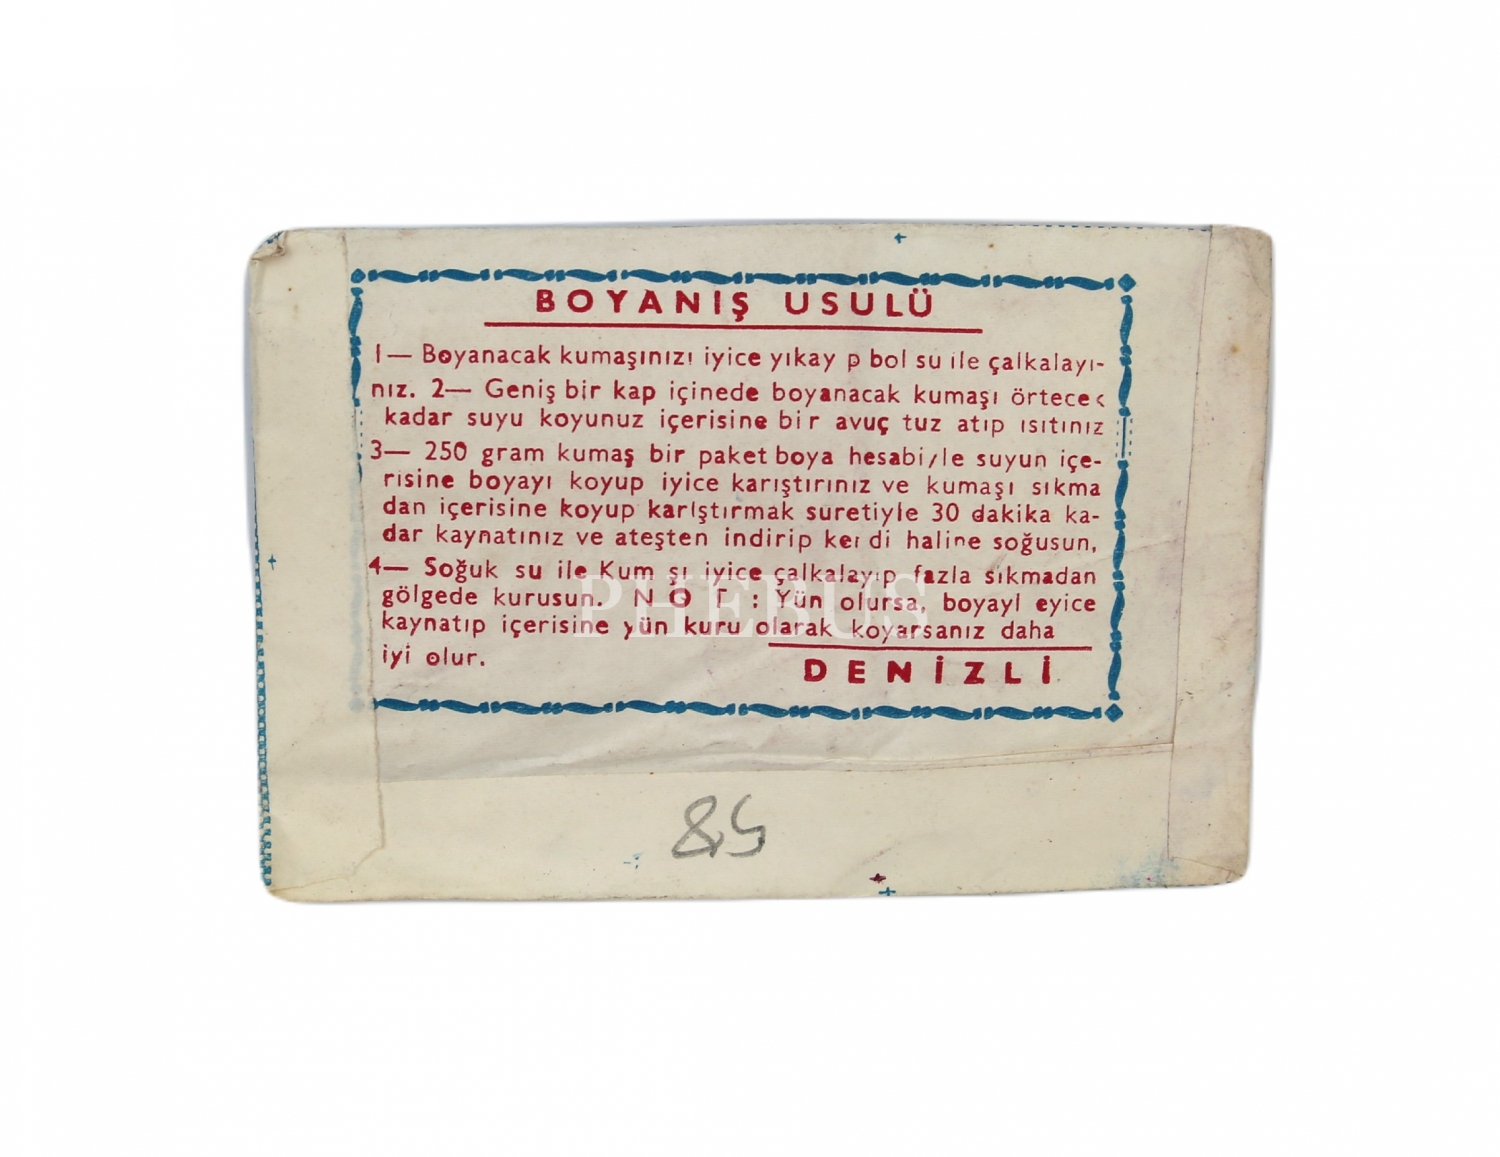 BOYANIŞ USULÜ
1— Boyanacak kumaşınızı iyice yıkay p bol su ile çalkalayı-
nız. 2— Geniş bir kap içinede boyanacak kumaşı örtecek
kadar suyu koyunuz içerisine bir avuç tuz atıp ısıtınız
3— 250 gram kumaş bir paket boya hesabi/le suyun içe-
risine boyayı koyup iyice karıştırınız ve kumaşı sıkma
dan içerisine koyup karlştırmak suretiyle 30 dakika ka-
dar kaynatınız ve ateşten indirip kendi haline soğusun,
4— Soğuk su ile Kum şı iyice çalkalayıp fazla sıkmadan
gölgede kurusun. N O T : Yün olursa, boyayl eyice
kaynatıp içerisine yün kuru olarak koyarsanız daha
iyi olur.
DENİZLİ
PHEBUS